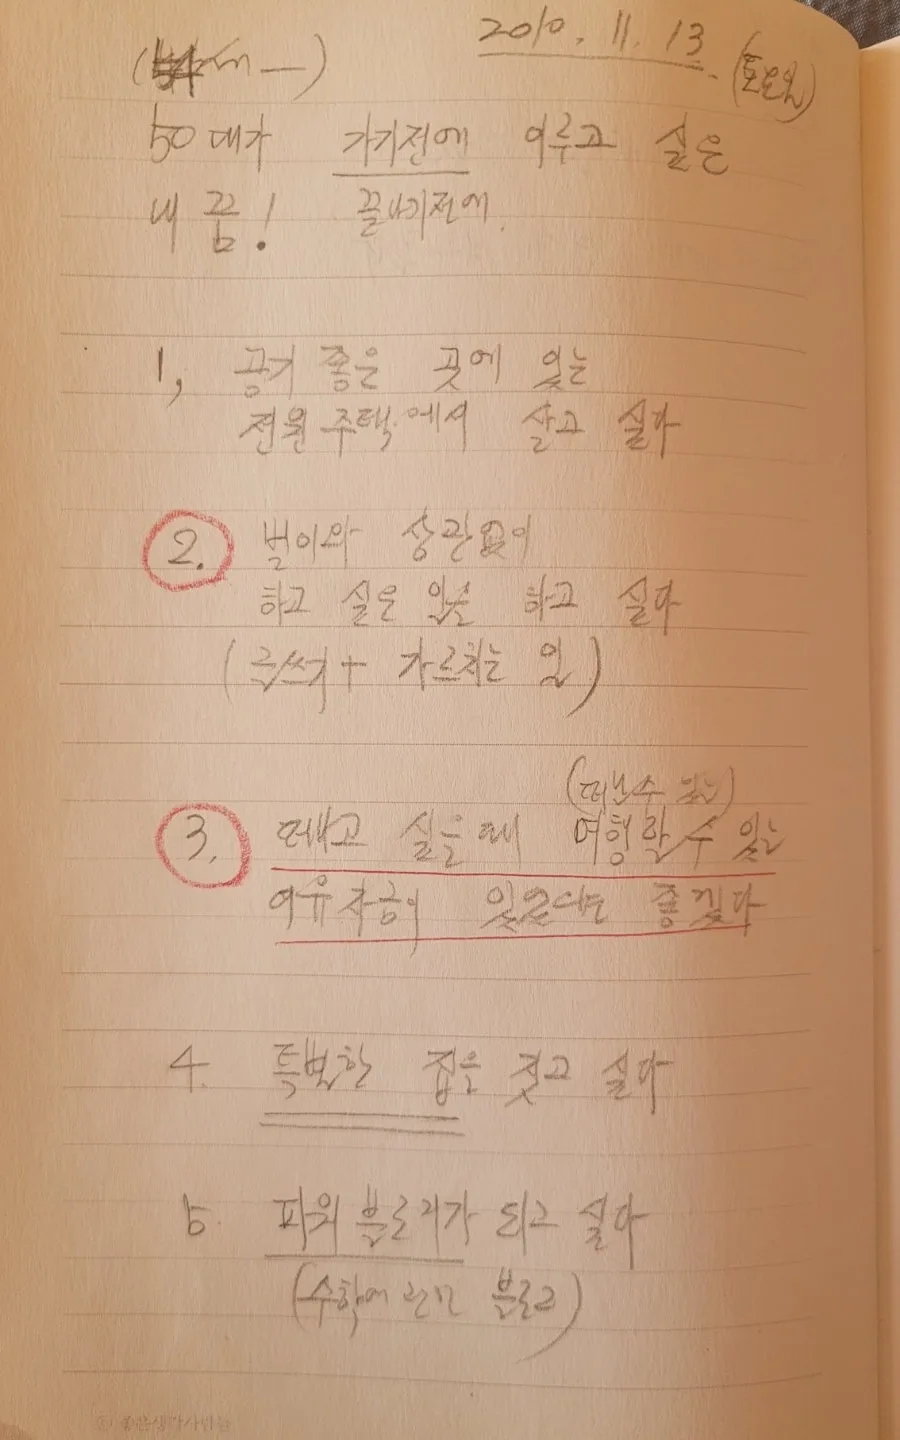 2010. 11. 13
(토요일)
50대가 가기전에 이루고 싶은
내 꿈! 끝나기전에.
1, 공기 좋은 곳에 있는
전원주택에서 살고 싶다
2. 벌이와 상관없이
하고 싶은 일을 하고 싶다
(글쓰기+ 가르치는 일)
(떠날 수 있는)
3. 떼고 싶을 때 여행할 수 있는
여유자금이 있었다면 좋겠다
4. 특별한 집을 짓고 싶다
5. 파워블로거가 되고 싶다
(수학에 관한 블로그)